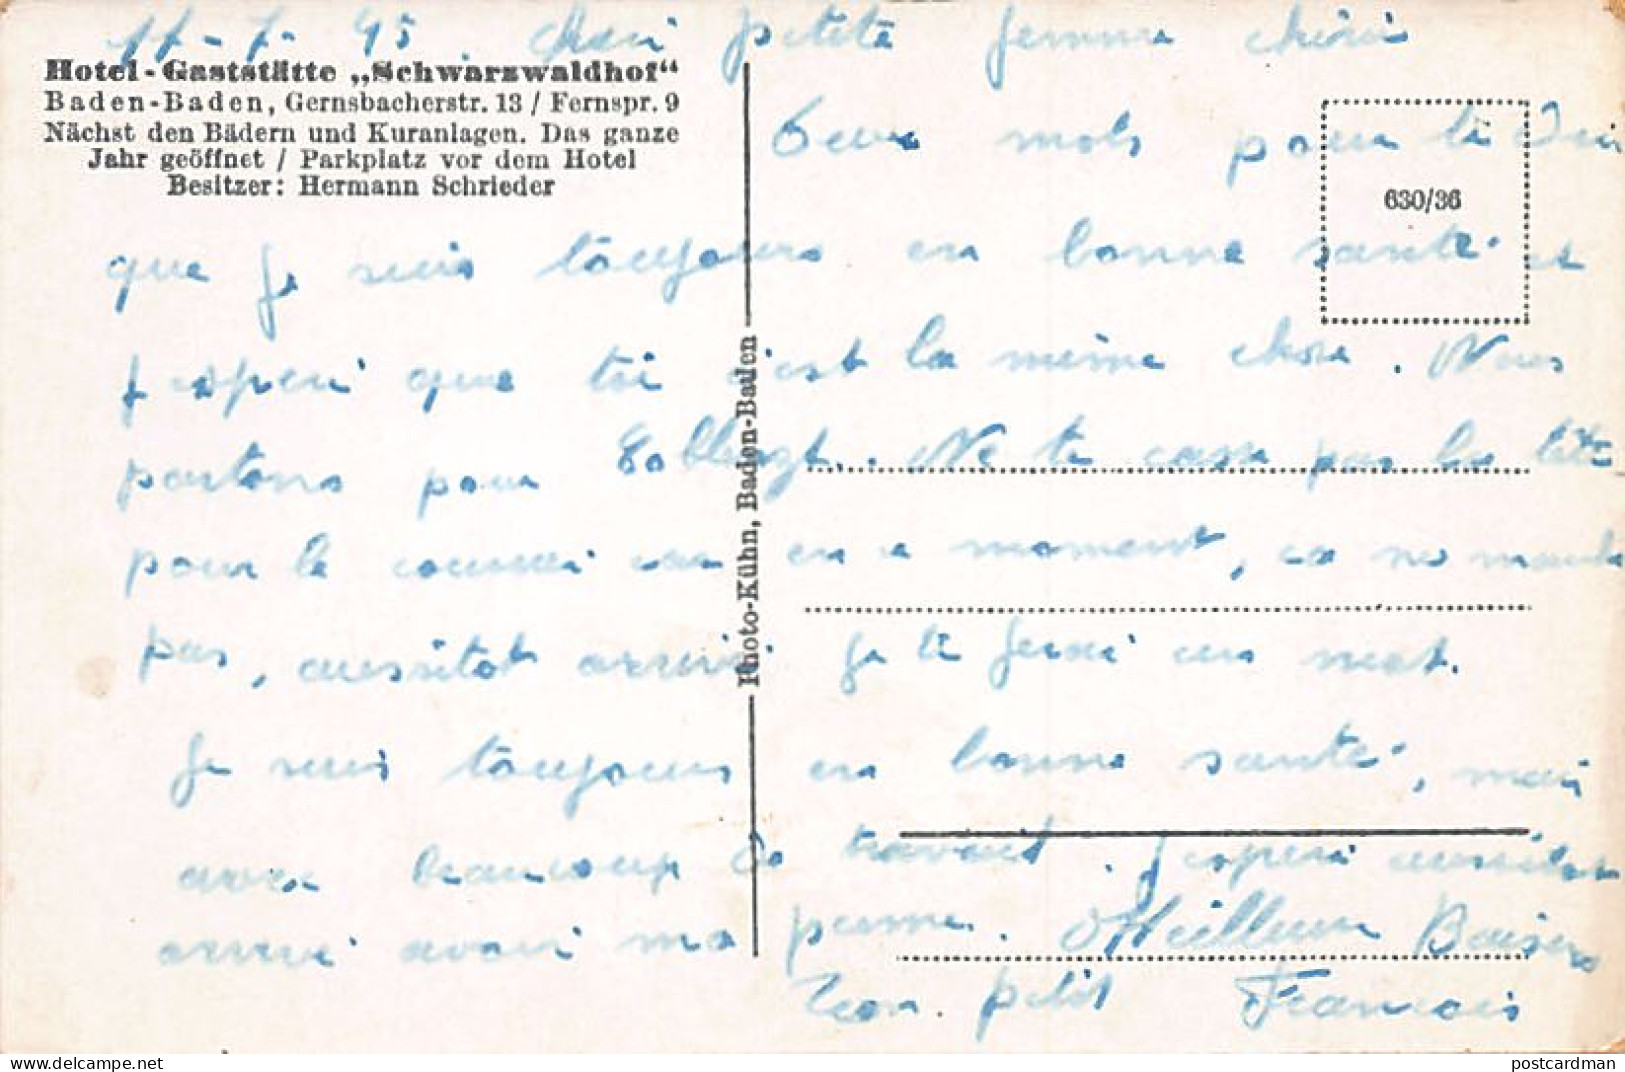 11-7-45 Cheri petite femme cheri
Hotel-Gaststätte „Schwarzwaldhof“
Baden-Baden, Gernsbacherstr. 13 / Fernspr. 9
Nächst den Bädern und Kuranlagen. Das ganze
Jahr geöffnet / Parkplatz vor dem Hotel
Besitzer: Hermann Schrieder
Photo-Kühn, Baden-Baden
630/36
Deux mots pour te dire
que je suis toujours en bonne santé et
j'esperi que toi c'est la meme chose. Nous
partons pour Coblenzt. Ne te casse pas la tête
pour le courrier car en ce moment, ca ne marche
pas, aussitot arriver je te ferai un mot.
Je suis toujours en bonne santé, mais
avec beaucoup de travail. J'esperi aussitot
arriver avoir ma perme. Meilleur Baisers
Ton petit Francois
postcardman